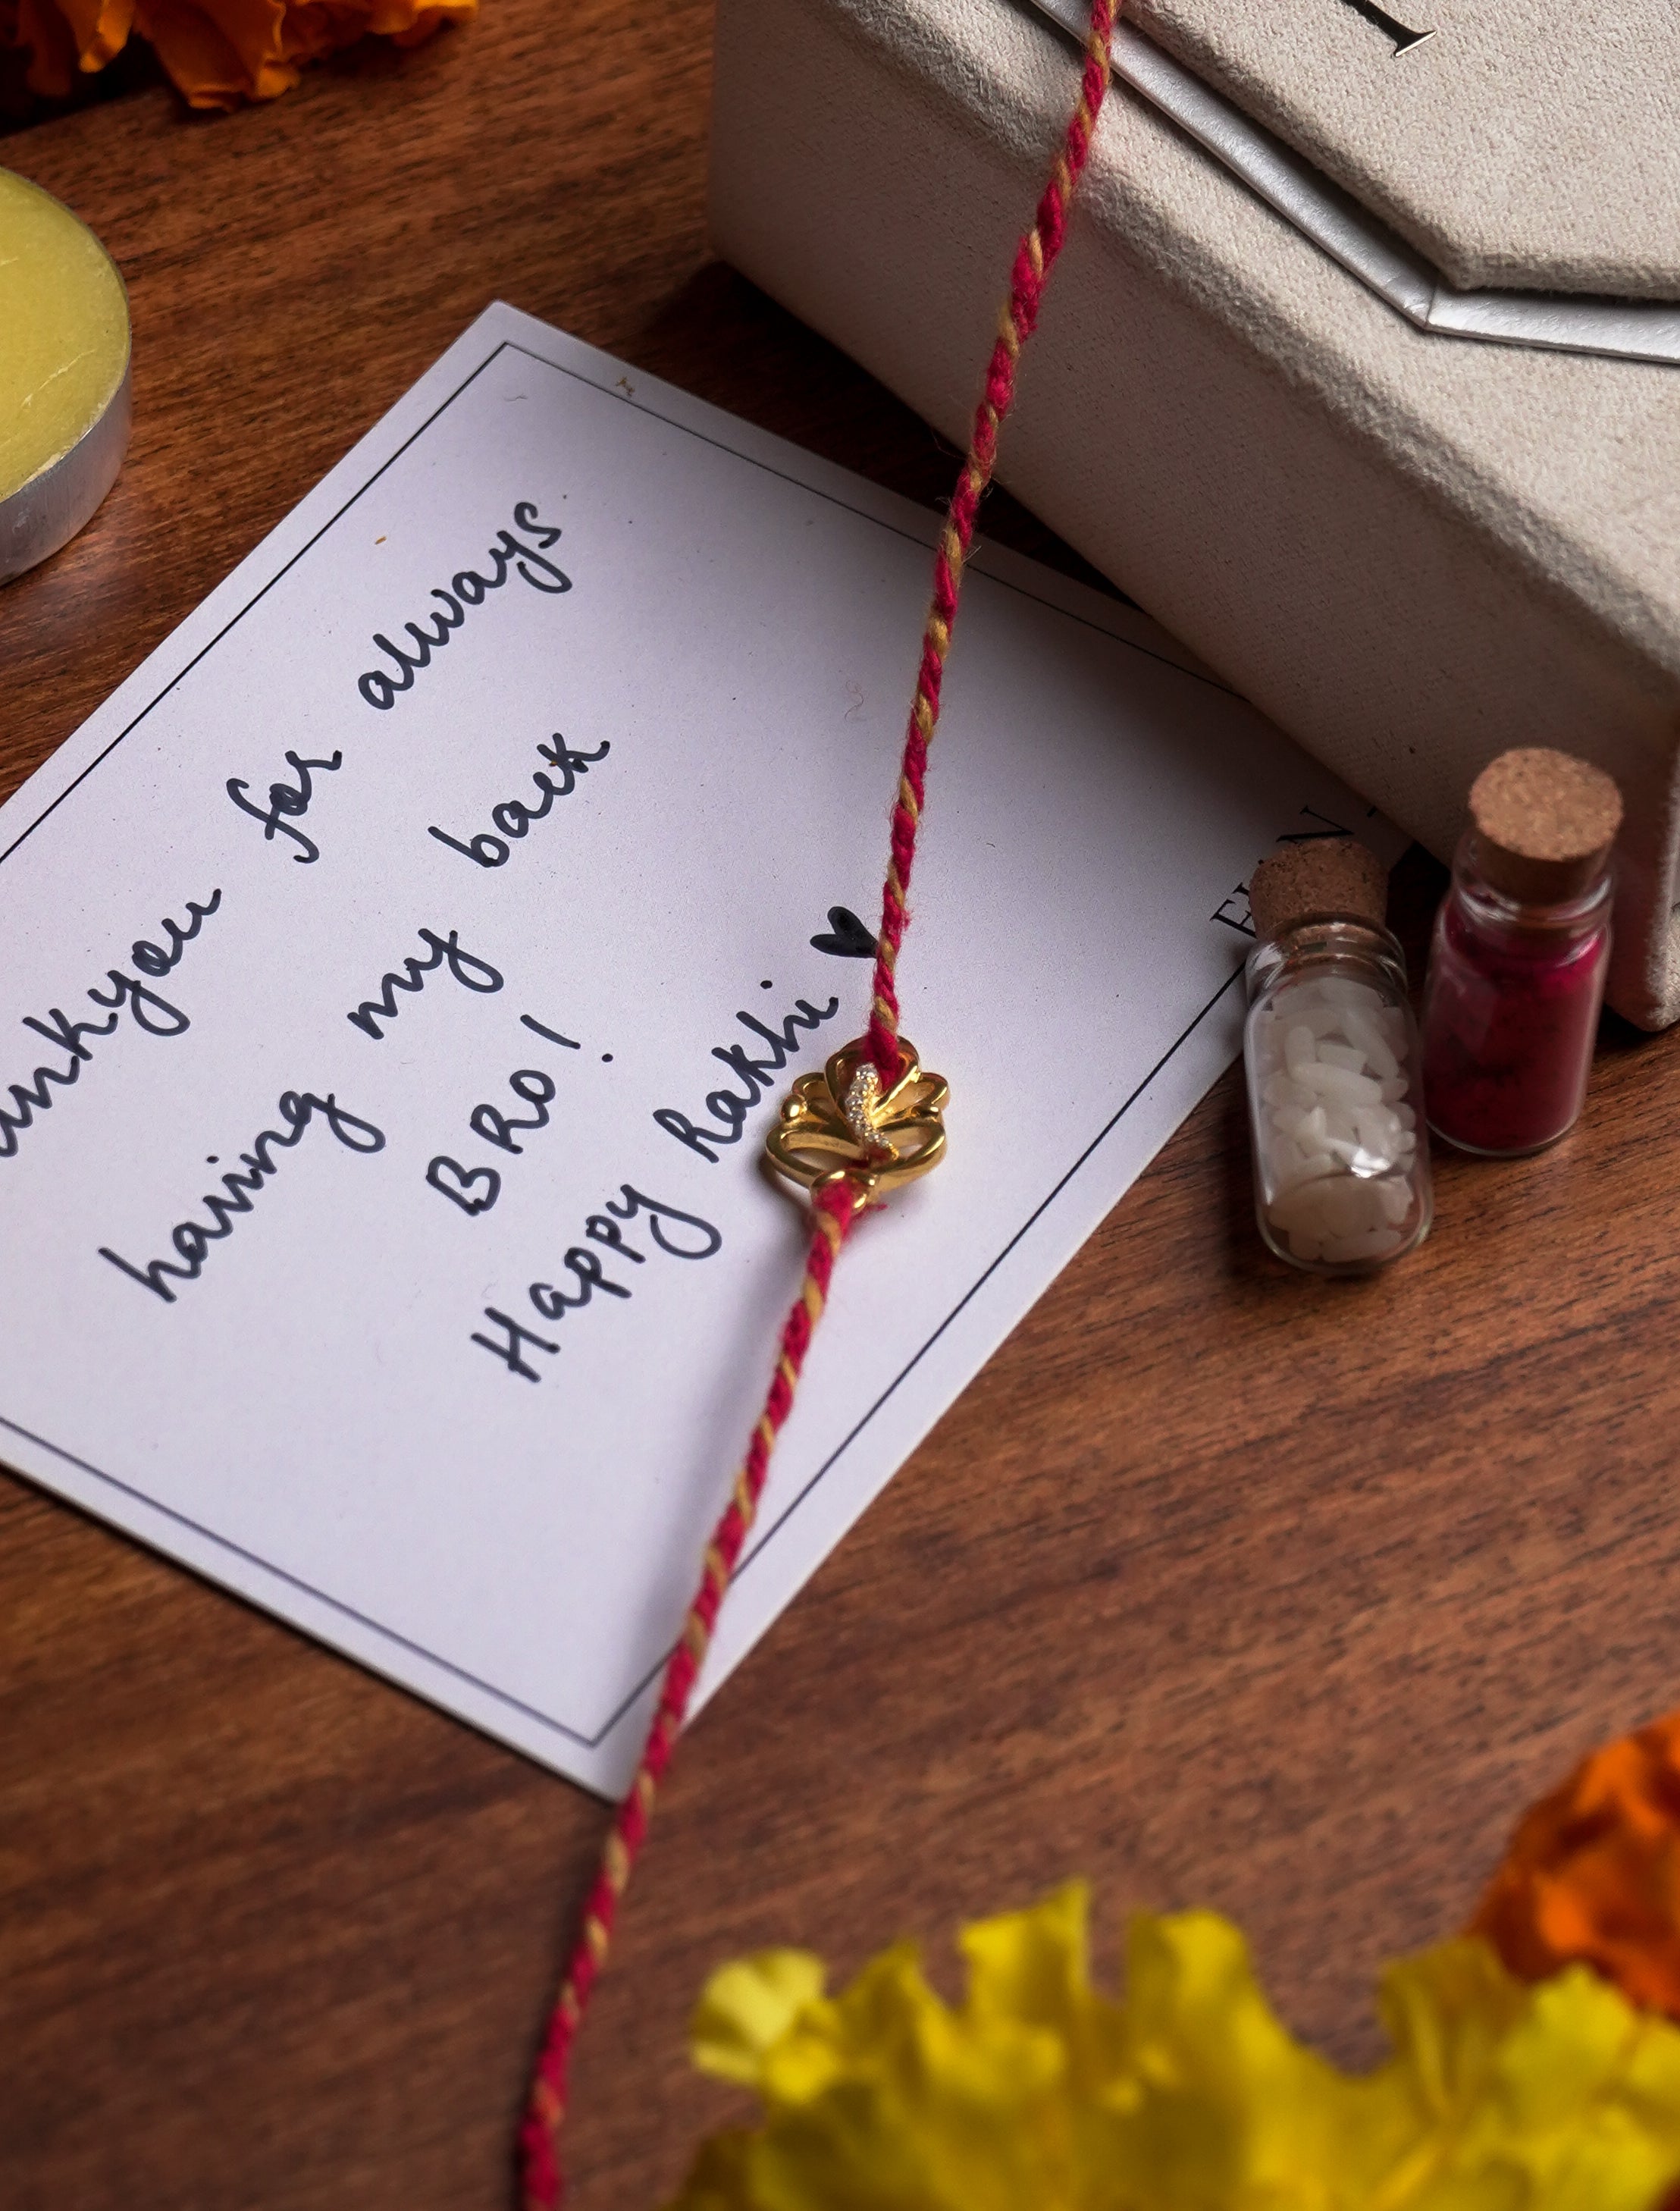 ankyou for always
having my back
BRO!
Happy Rakhi